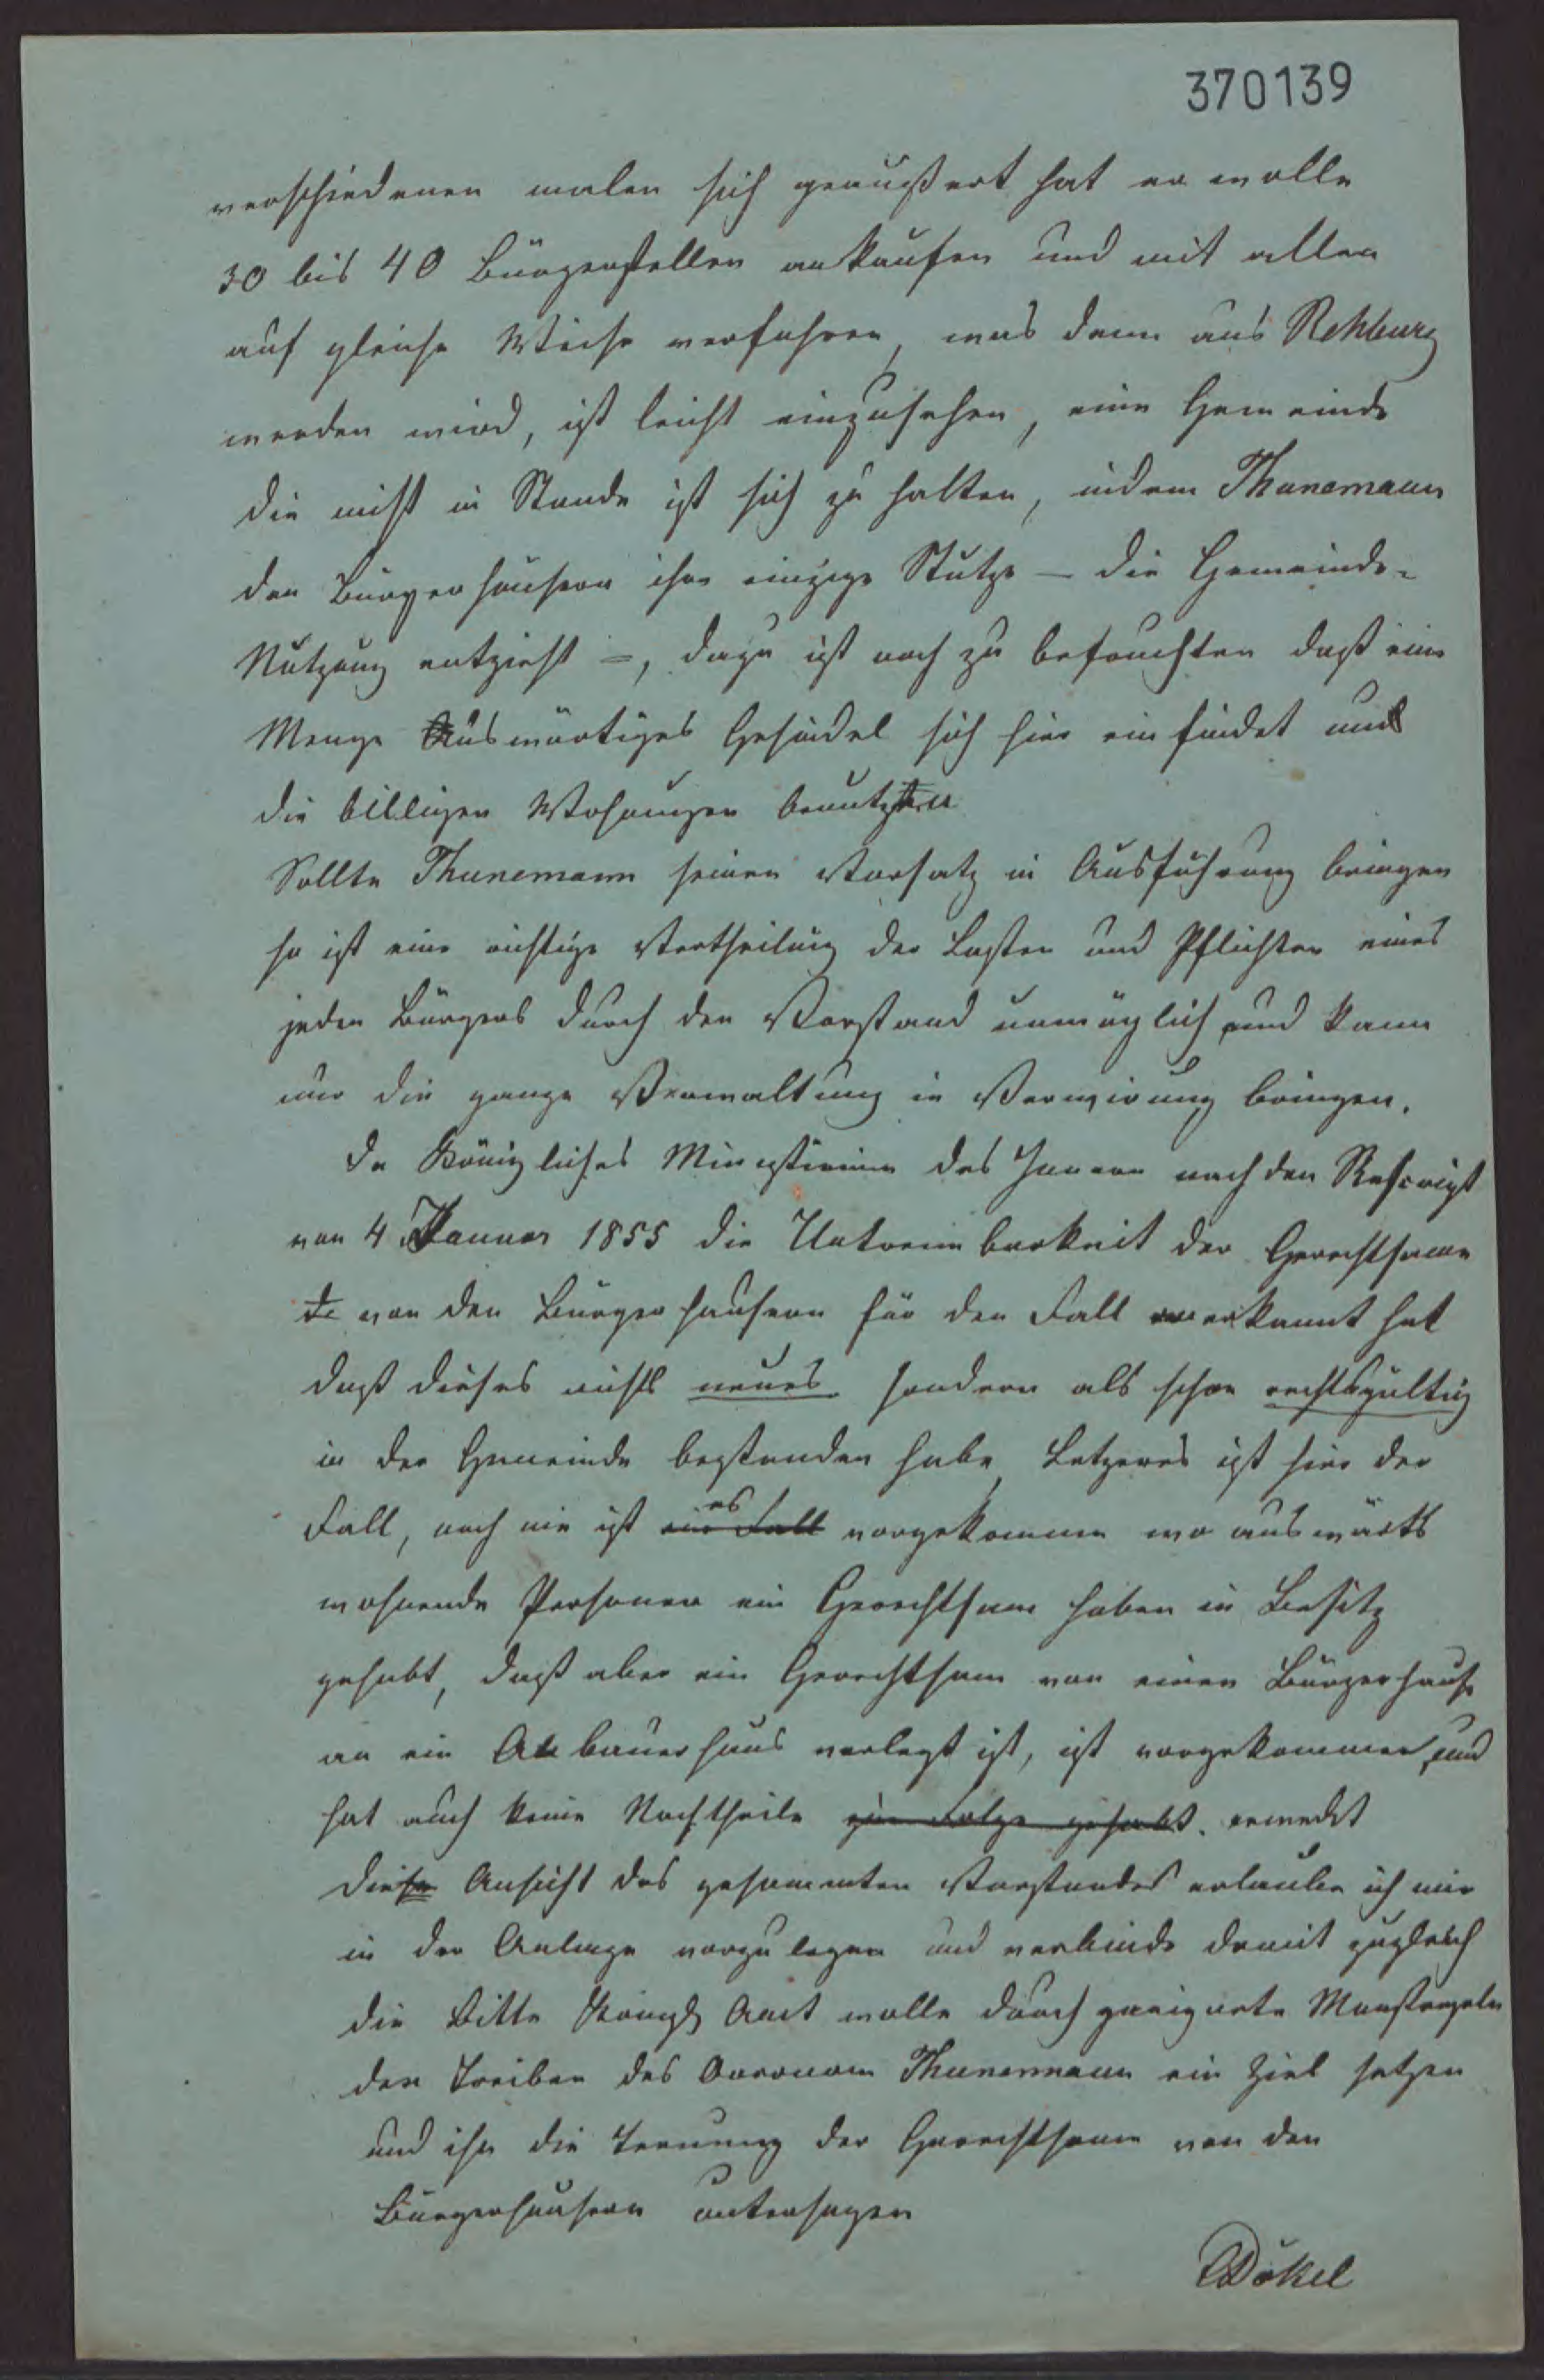 370139
verschiedenen malen sich geäußert hat er wolle
30 bis 40 Bürgerstellen ankaufen und mit allen
auf gleiche Weise verfahren, was dann aus Rehburg
werden wird, ist leicht einzusehen, eine Gemeinde
die nicht in Stande ist sich zu halten, indem Thunemann
den Bürgerhäusern ihre einzige Stütze – die Gemeinde-
Nutzung entzieht –, dazu ist noch zu befürchten daß eine
Menge Auswärtiges Gesindel sich hier einfindet und
die billigen Wohnungen benutzen
Sollte Thunemann seinen Vorsatz in Ausführung bringen
so ist eine richtige Vertheilung der Lasten und Pflichten eines
jeden Bürgers durch den Vorstand unmöglich und kann
nur die ganze Verwaltung in Verwirung bringen.
Da Königliches Ministerium des Innern nach den Rescript
von 4 Januar 1855 die Untrennbarkeit der Gerechtsame
von den Bürgerhäusern für den Fall anerkannt hat
daß dieses nichts neues sondern als schon rechtsgültig
in der Gemeinde bestanden habe, Letzeres ist hier der
Fall, noch nie ist ein Fall es vorgekommen wo auswärts
wohnende Personen ein Gerechtsam haben in Besitz
gehabt, daß aber ein Gerechtsam von einen Bürgerhause
an ein Anbauerhaus verlegt ist, ist vorgekommen und
hat auch keine Nachtheile zur Folge gehabt. erweckt
Diese Ansicht des gesammten Vorstandes erlaube ich mir
in der Anlage vorzulegen und verbinde damit zugleich
die Bitte Königl Amt wolle durch geeignete Maasregeln
den Treiben des Oeconom Thunemann ein Ziel setzen
und ihn die Trennung der Gerechtsame von den
Bürgerhäusern untersagen
Dökel